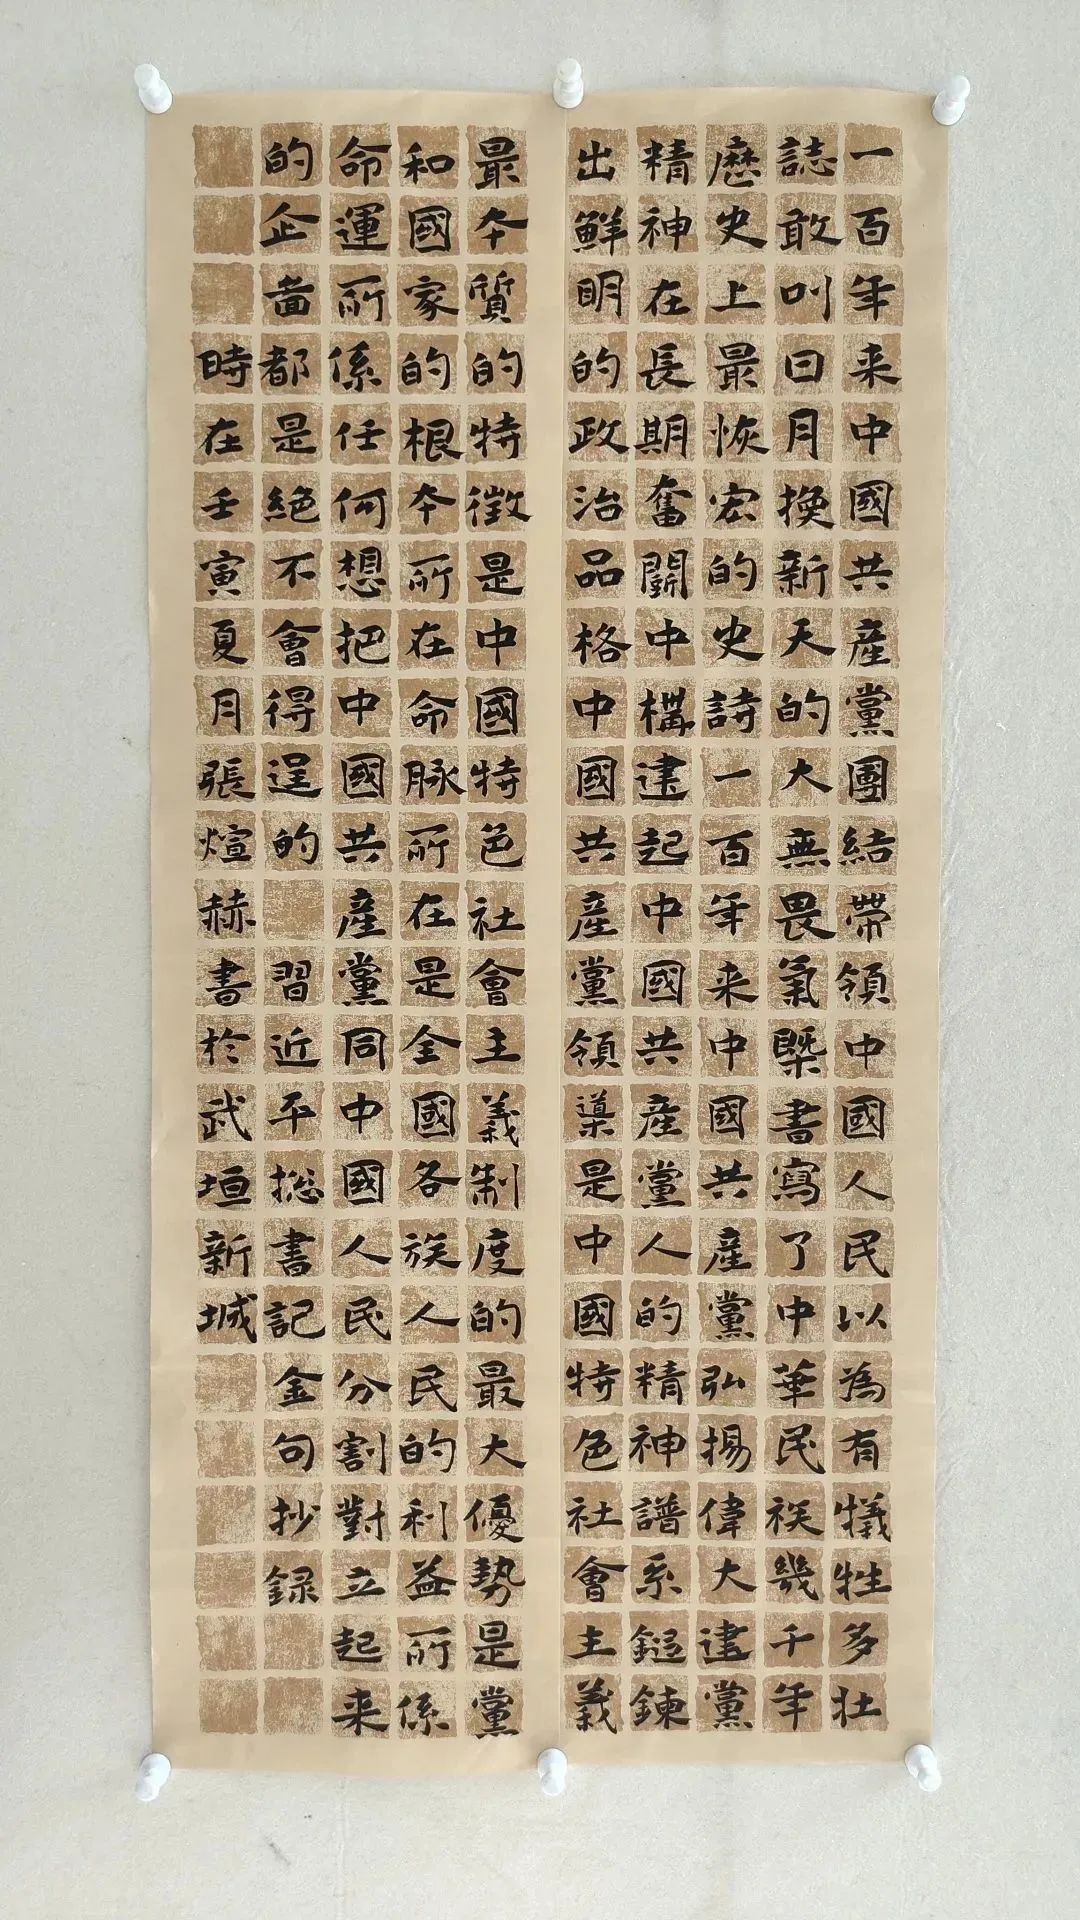 一百年来中國共産黨團結帶領中國人民以為有犠牲多壮
誌敢叫日月換新天的大無畏氣槩書寫了中華民族幾千年
歷史上最恢宏的史詩一百年来中國共産黨弘揚偉大建黨
精神在長期奮鬭中構建起中國共産黨人的精神譜系鍛鍊
出鮮明的政治品格中國共産黨領導是中國特色社會主義
最本質的特徵是中國特色社會主義制度的最大優勢是黨
和國家的根本所在命脉所在是全國各族人民的利益所係
命運所係任何想把中國共産黨同中國人民分割對立起来
的企啚都是絶不會得逞的 習近平揔書記金句抄録
時在壬寅夏月張煊赫書於武垣新城